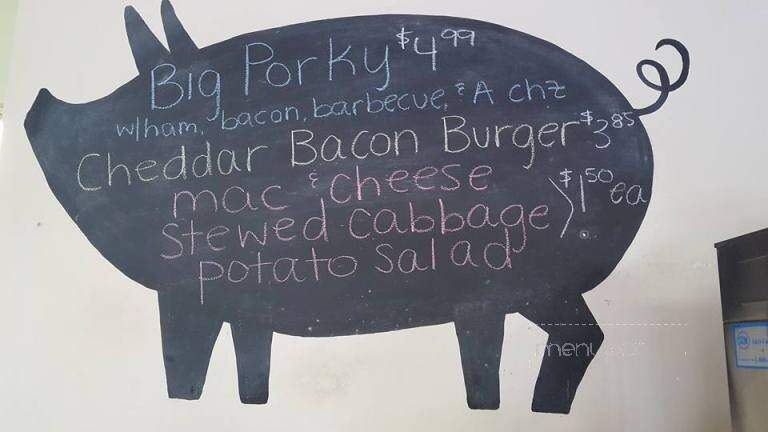 Big Porky $4.99
w/ham, bacon, barbecue, & A chz
Cheddar Bacon Burger $3.85
mac & cheese
stewed cabbage > $1.50 ea.
potato salad
menu